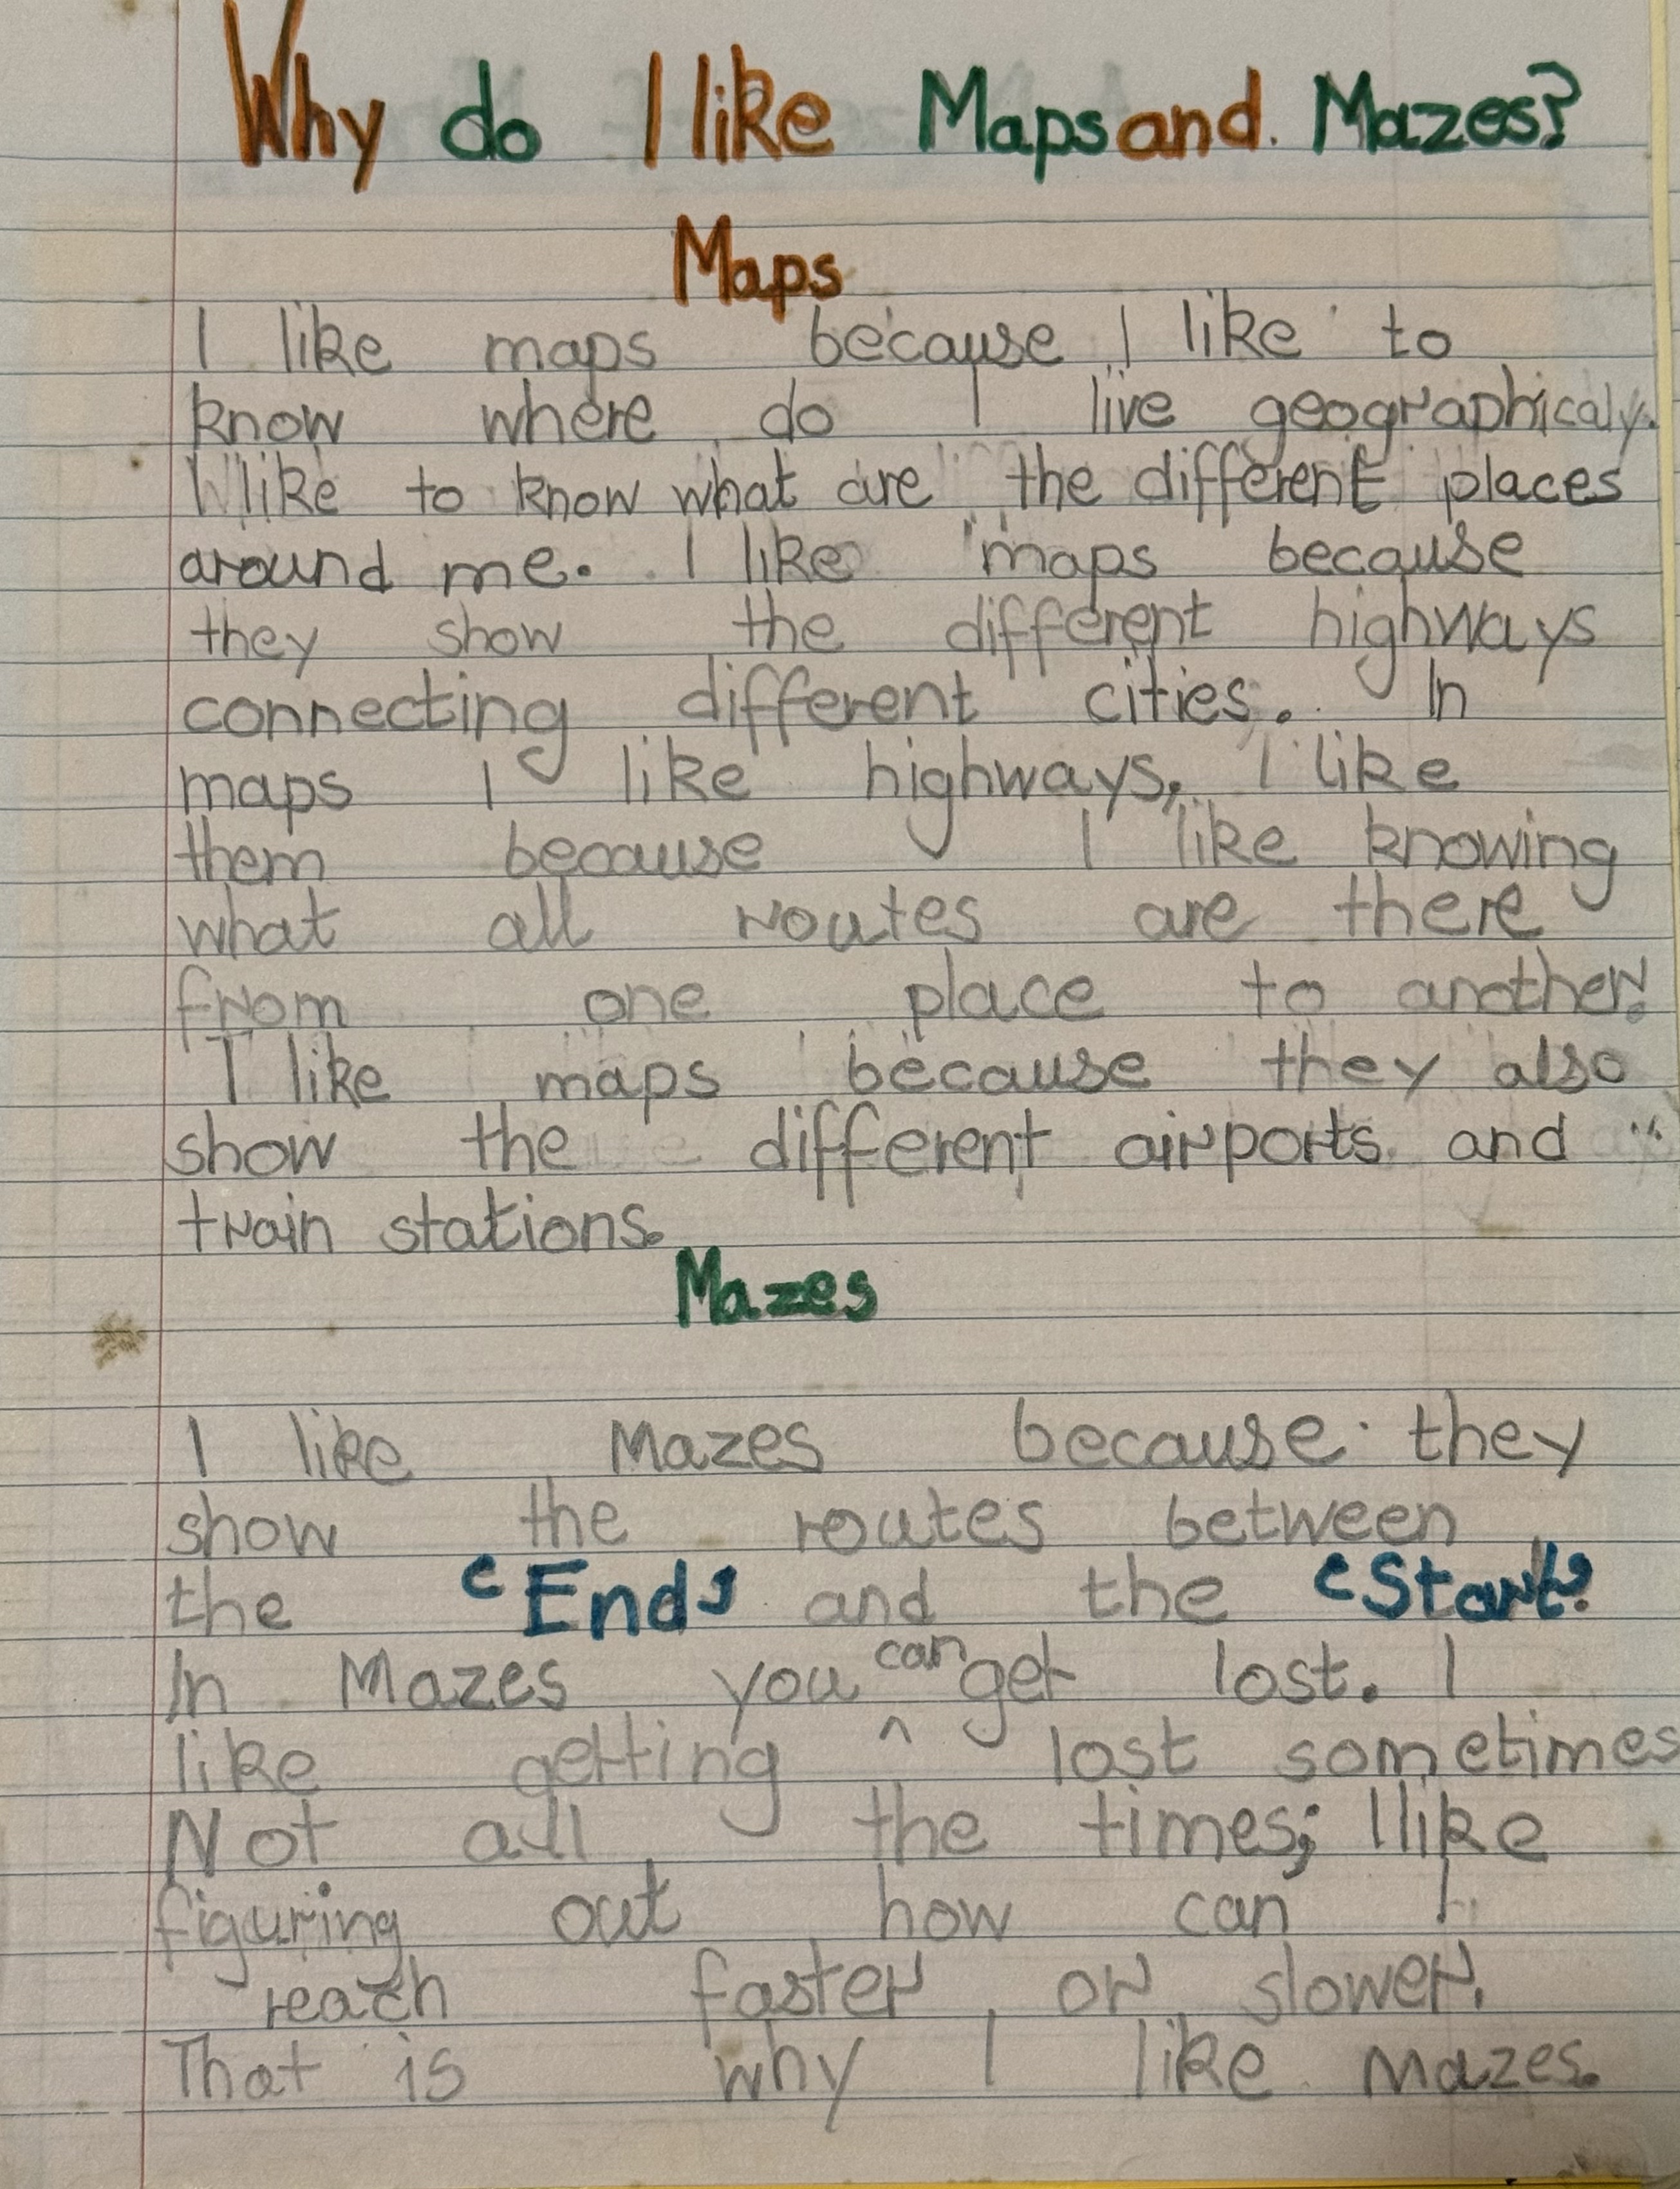 Why do I like Maps and Mazes?
Maps
I like maps because I like to
know where do I live geographicaly.
I like to know what are the different places
around me. I like maps because
they show the different highways
connecting different cities. In
maps I like highways, I like
them because I like knowing
what all routes are there
from one place to another.
I like maps because they also
show the different airports and
train stations.
Mazes
I like Mazes because they
show the routes between
the 'End' and the 'Start'.
In Mazes you can get lost. I
like getting lost sometimes
Not all the times; I like
figuring out how can I
reach faster or slower.
That is why I like Mazes.